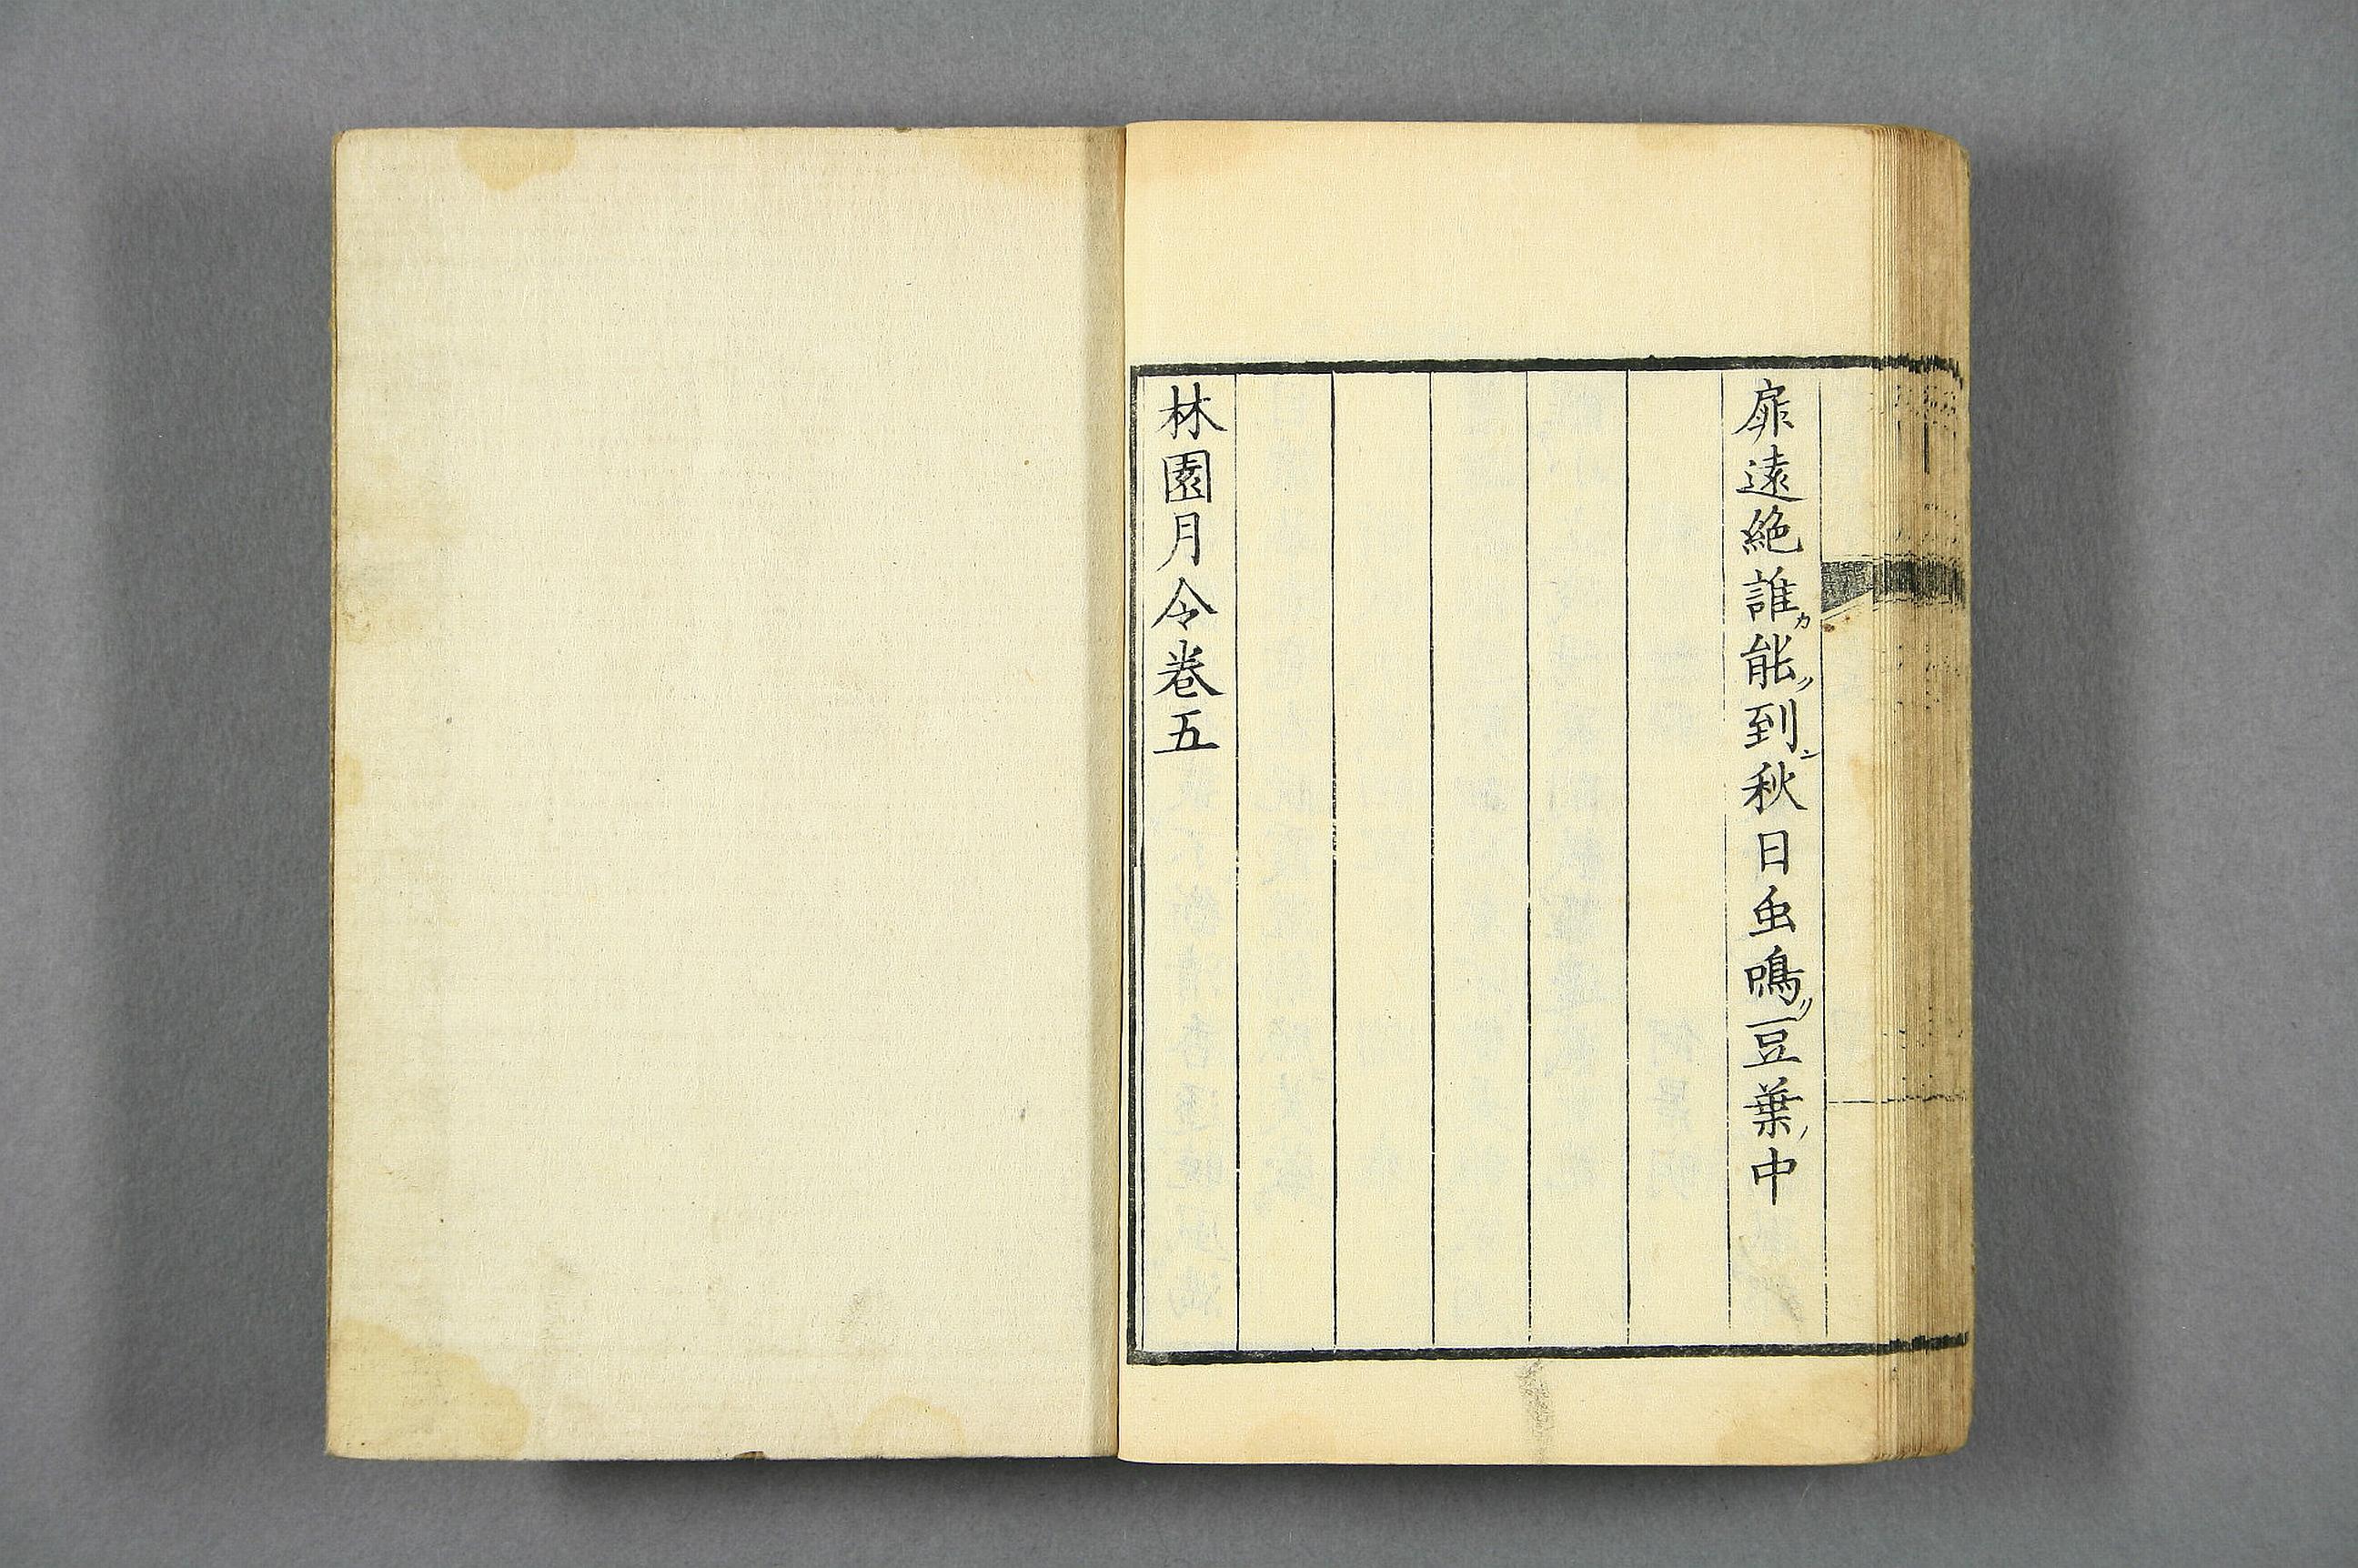 扉遠絶誰カ能ク到ン秋日虫鳴ク豆葉ノ中
林園月令巻五